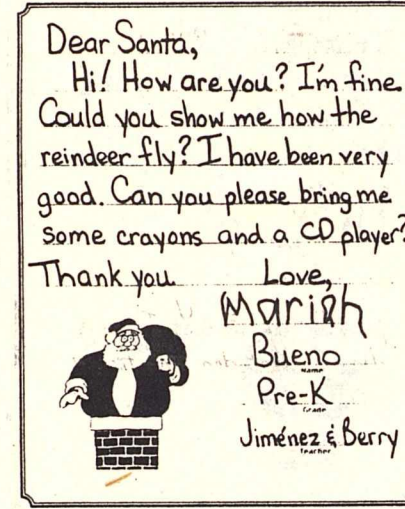 Dear Santa,
Hi! How are you? I'm fine.
Could you show me how the
reindeer fly? I have been very
good. Can you please bring me
some crayons and a CD player?
Thank you Love,
Mariah
Bueno
Name
Pre-K
Grade
Jiménez & Berry
Teacher